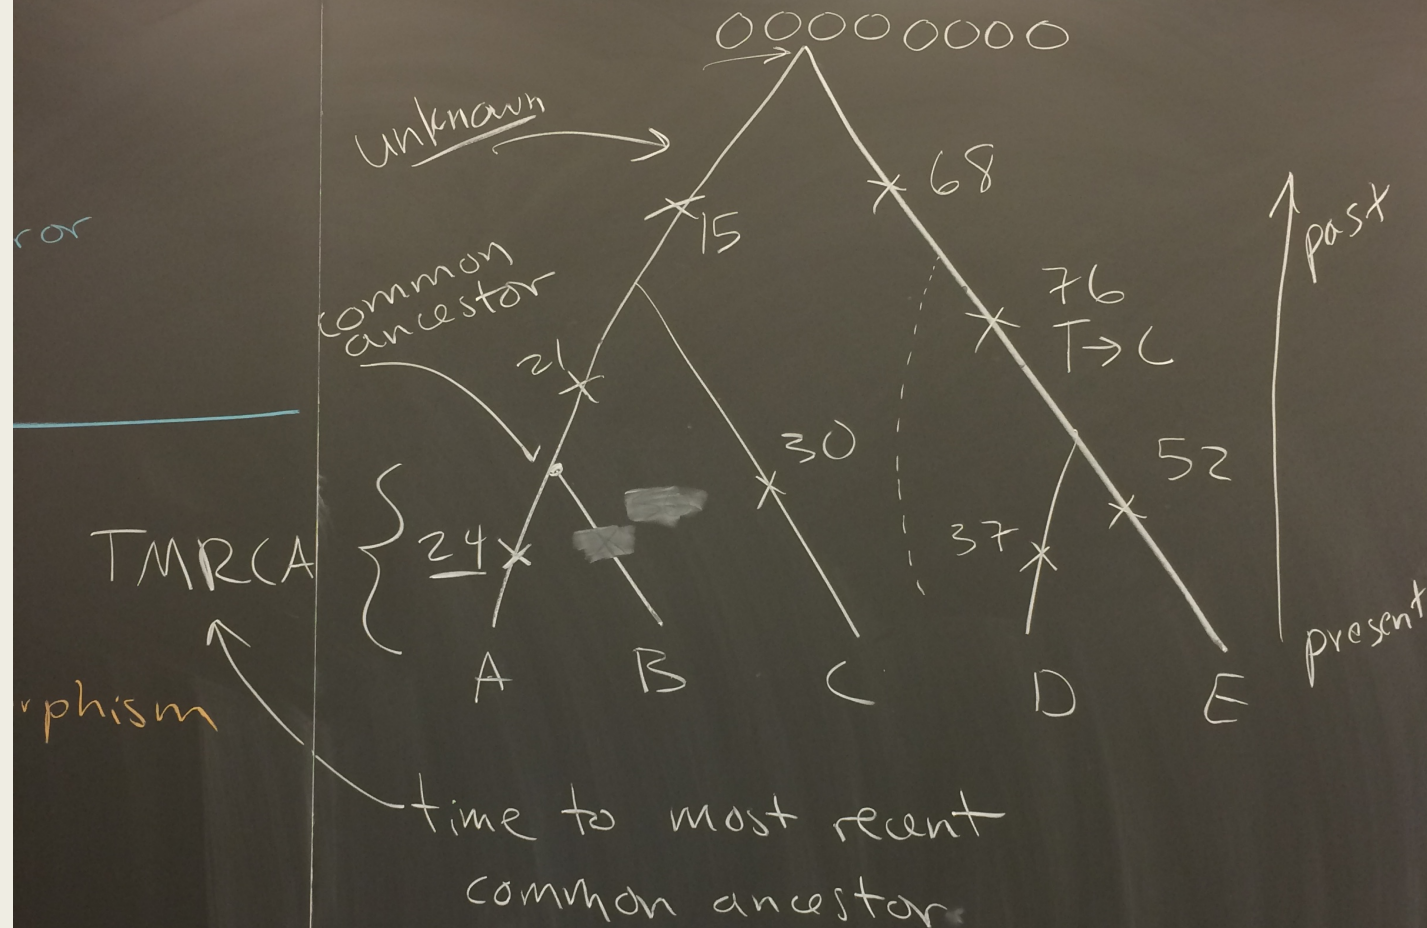 0000 0000
unknown
68
15
past
ror
common
ancestor
76
T→C
21
30
52
TMRCA
24
37
present
A B C D E
rphism
time to most recent
common ancestor